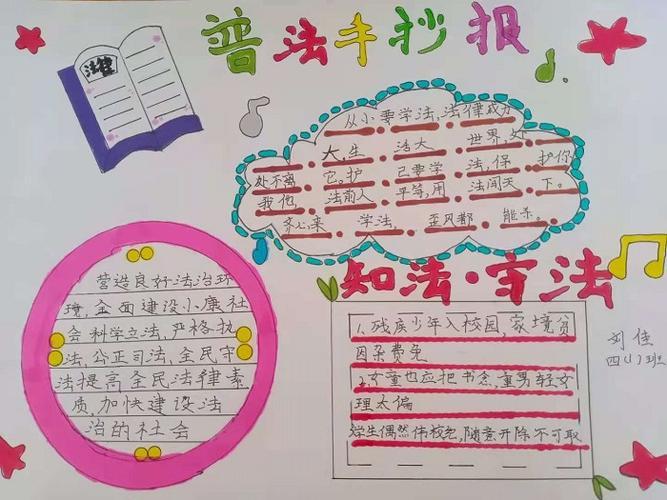 普法手抄报
法律
从小要学法,法律威力
大,生 浩大 世界,处
处不离 它。护 己要学 法,保 护你
我他, 法前人 平等,用 法闯天 下。
齐心来 学法, 歪风都 能杀。
知法·守法
营造良好法治环
境,全面建设小康社
会科学立法,严格执
法,公正司法,全民守
法提高全民法律素
质,加快建设法
治的社会
1、残疾少年入校园,家境贫
因杂费免
2,女童也应把书念,重男轻女
理太偏
学生偶然伤校纪,随意开除不可取
刘佳
四(1)班